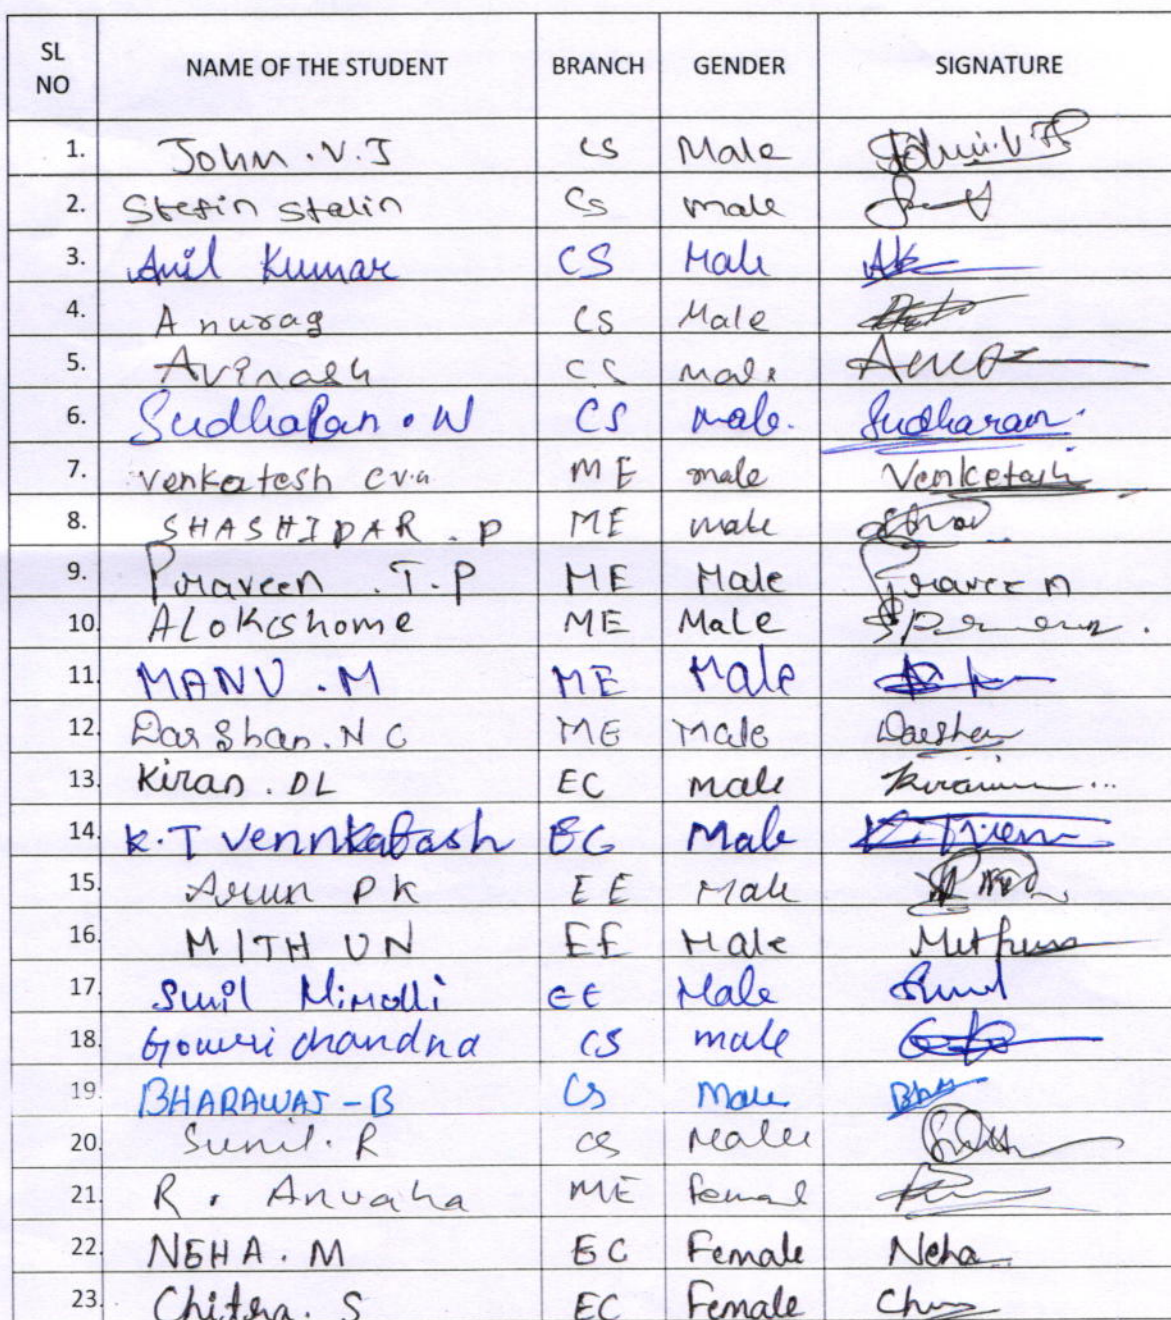 SL NO NAME OF THE STUDENT BRANCH GENDER SIGNATURE
1. John . V. J CS Male John. V J
2. Stefin Stalin CS male
3. Anil Kumar CS Male AK
4. Anurag CS Male
5. Avinash CS male
6. Sudharan . N CS male. Sudharan
7. venkatesh ME male Venketash
8. SHASHIDAR . P ME male
9. Praveen . T. P ME Male Praveen
10. ALOKcshome ME Male
11. MANU . M ME Male
12. Darshan. N C ME Male Darshan
13. Kiran . DL EC male Kiran
14. K. T vennkatash EC Male
15. Arun P K EE Male
16. MITHUN EE Male Mithun
17. Sunil EE Male Sunil
18. Gowri chandna CS male
19. BHARAWAJ - B CS Male
20. Sunil. R CS Male
21. R. ME femal
22. NEHA . M EC Female Neha
23. Chitra. S EC Female